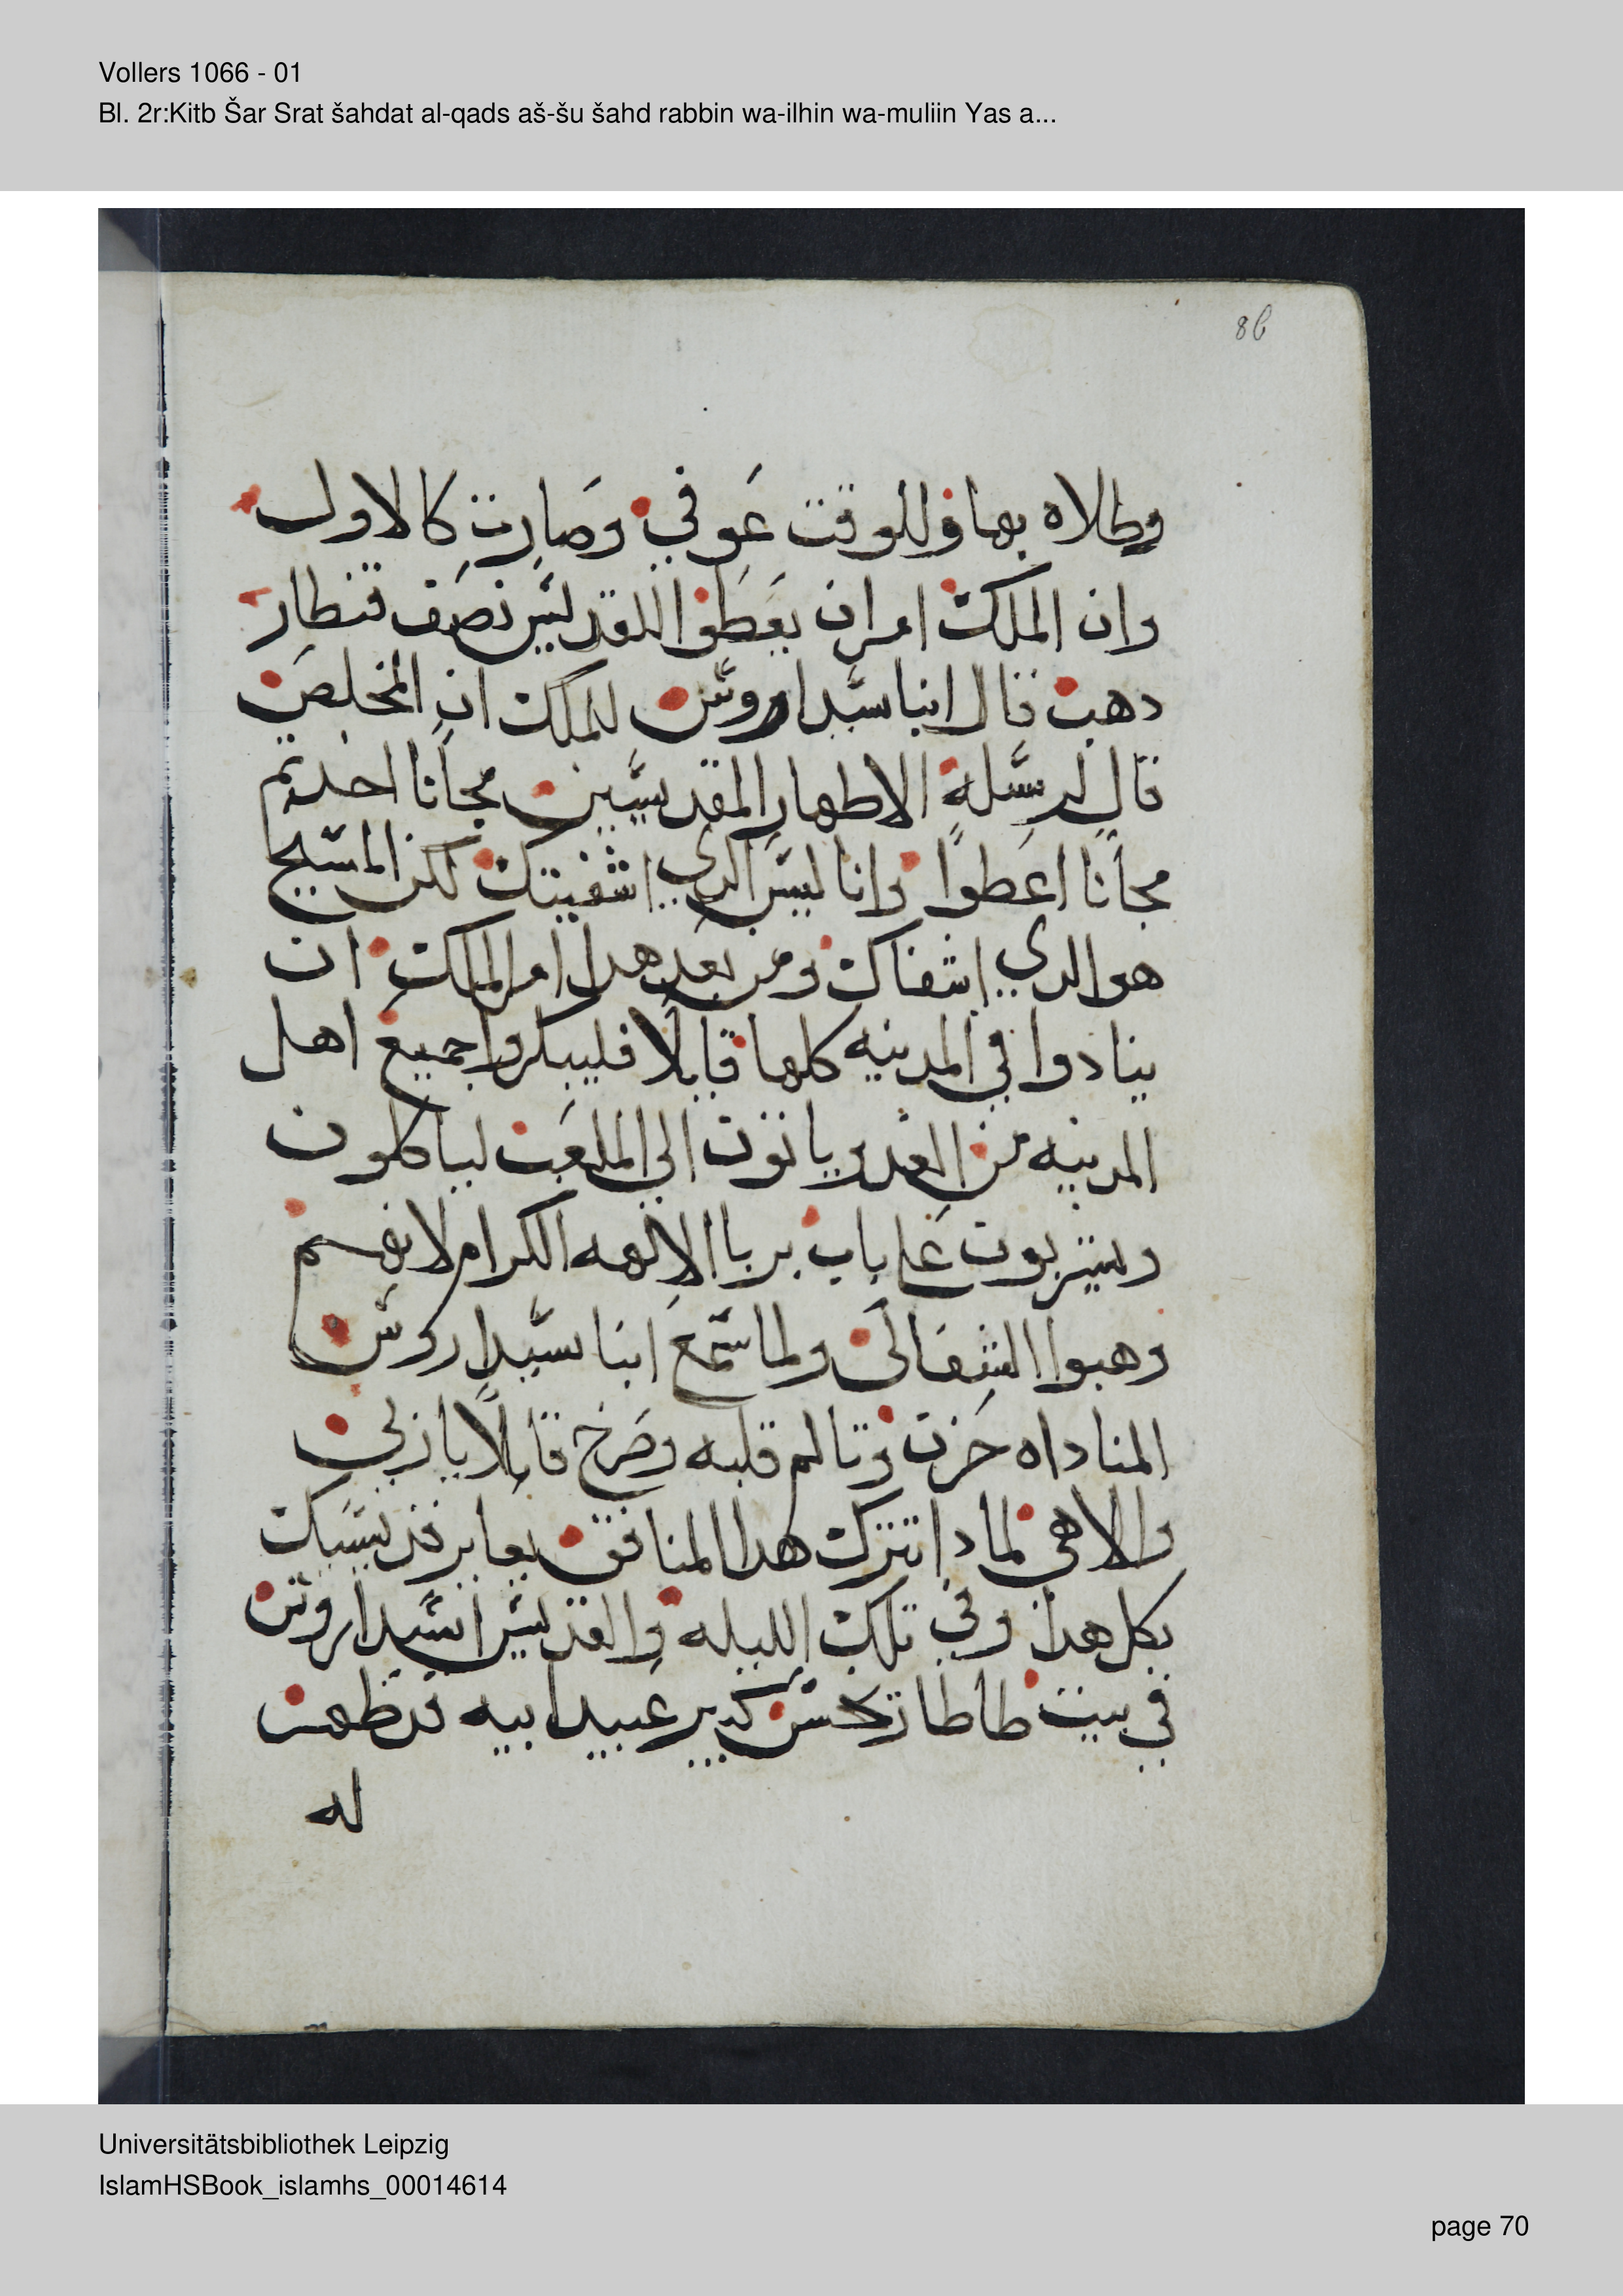 Vollers 1066 - 01
Bl. 2r:Kitb Šar Srat šahdat al-qads aš-šu šahd rabbin wa-ilhin wa-muliin Yas a...
8b
وطلاه بها وللوقت عَوفي وصَارت كالاول
وان الملك امران يعَطوا القديس نصَف قنطار
دهب قال انبا سيداروس للملك ان المخلصَ
قال لرسله الاطهار المقدسين مجانا اخدتم
مجانا اعَطوا وانا ليس الدي اشفيتك لكن المسيح
هو الدي اشفاك ومن بعَد هدا امر الملك ان
ينادوا في المدينه كلها قايلا فليبكروا جميع اهل
المدينه من الغد وياتون الي الملعَب لياكلون
ويشربون عَلي باب بربا الالهه الكرام لانهم
وهبوا الشفا لي ولما سمع انبا سيداروس
المناداه حزن وتالم قلبه وصَرخ قايلا يا ربي
والاهي لمادا تترك هدا المنافق يعاير قديسيك
بكل هدا وفي تلك الليله والقديس انسيداروس
في بيت طاطا كبير عَبيد ابيه قد ظهر
له
Universitätsbibliothek Leipzig
IslamHSBook_islamhs_00014614
page 70